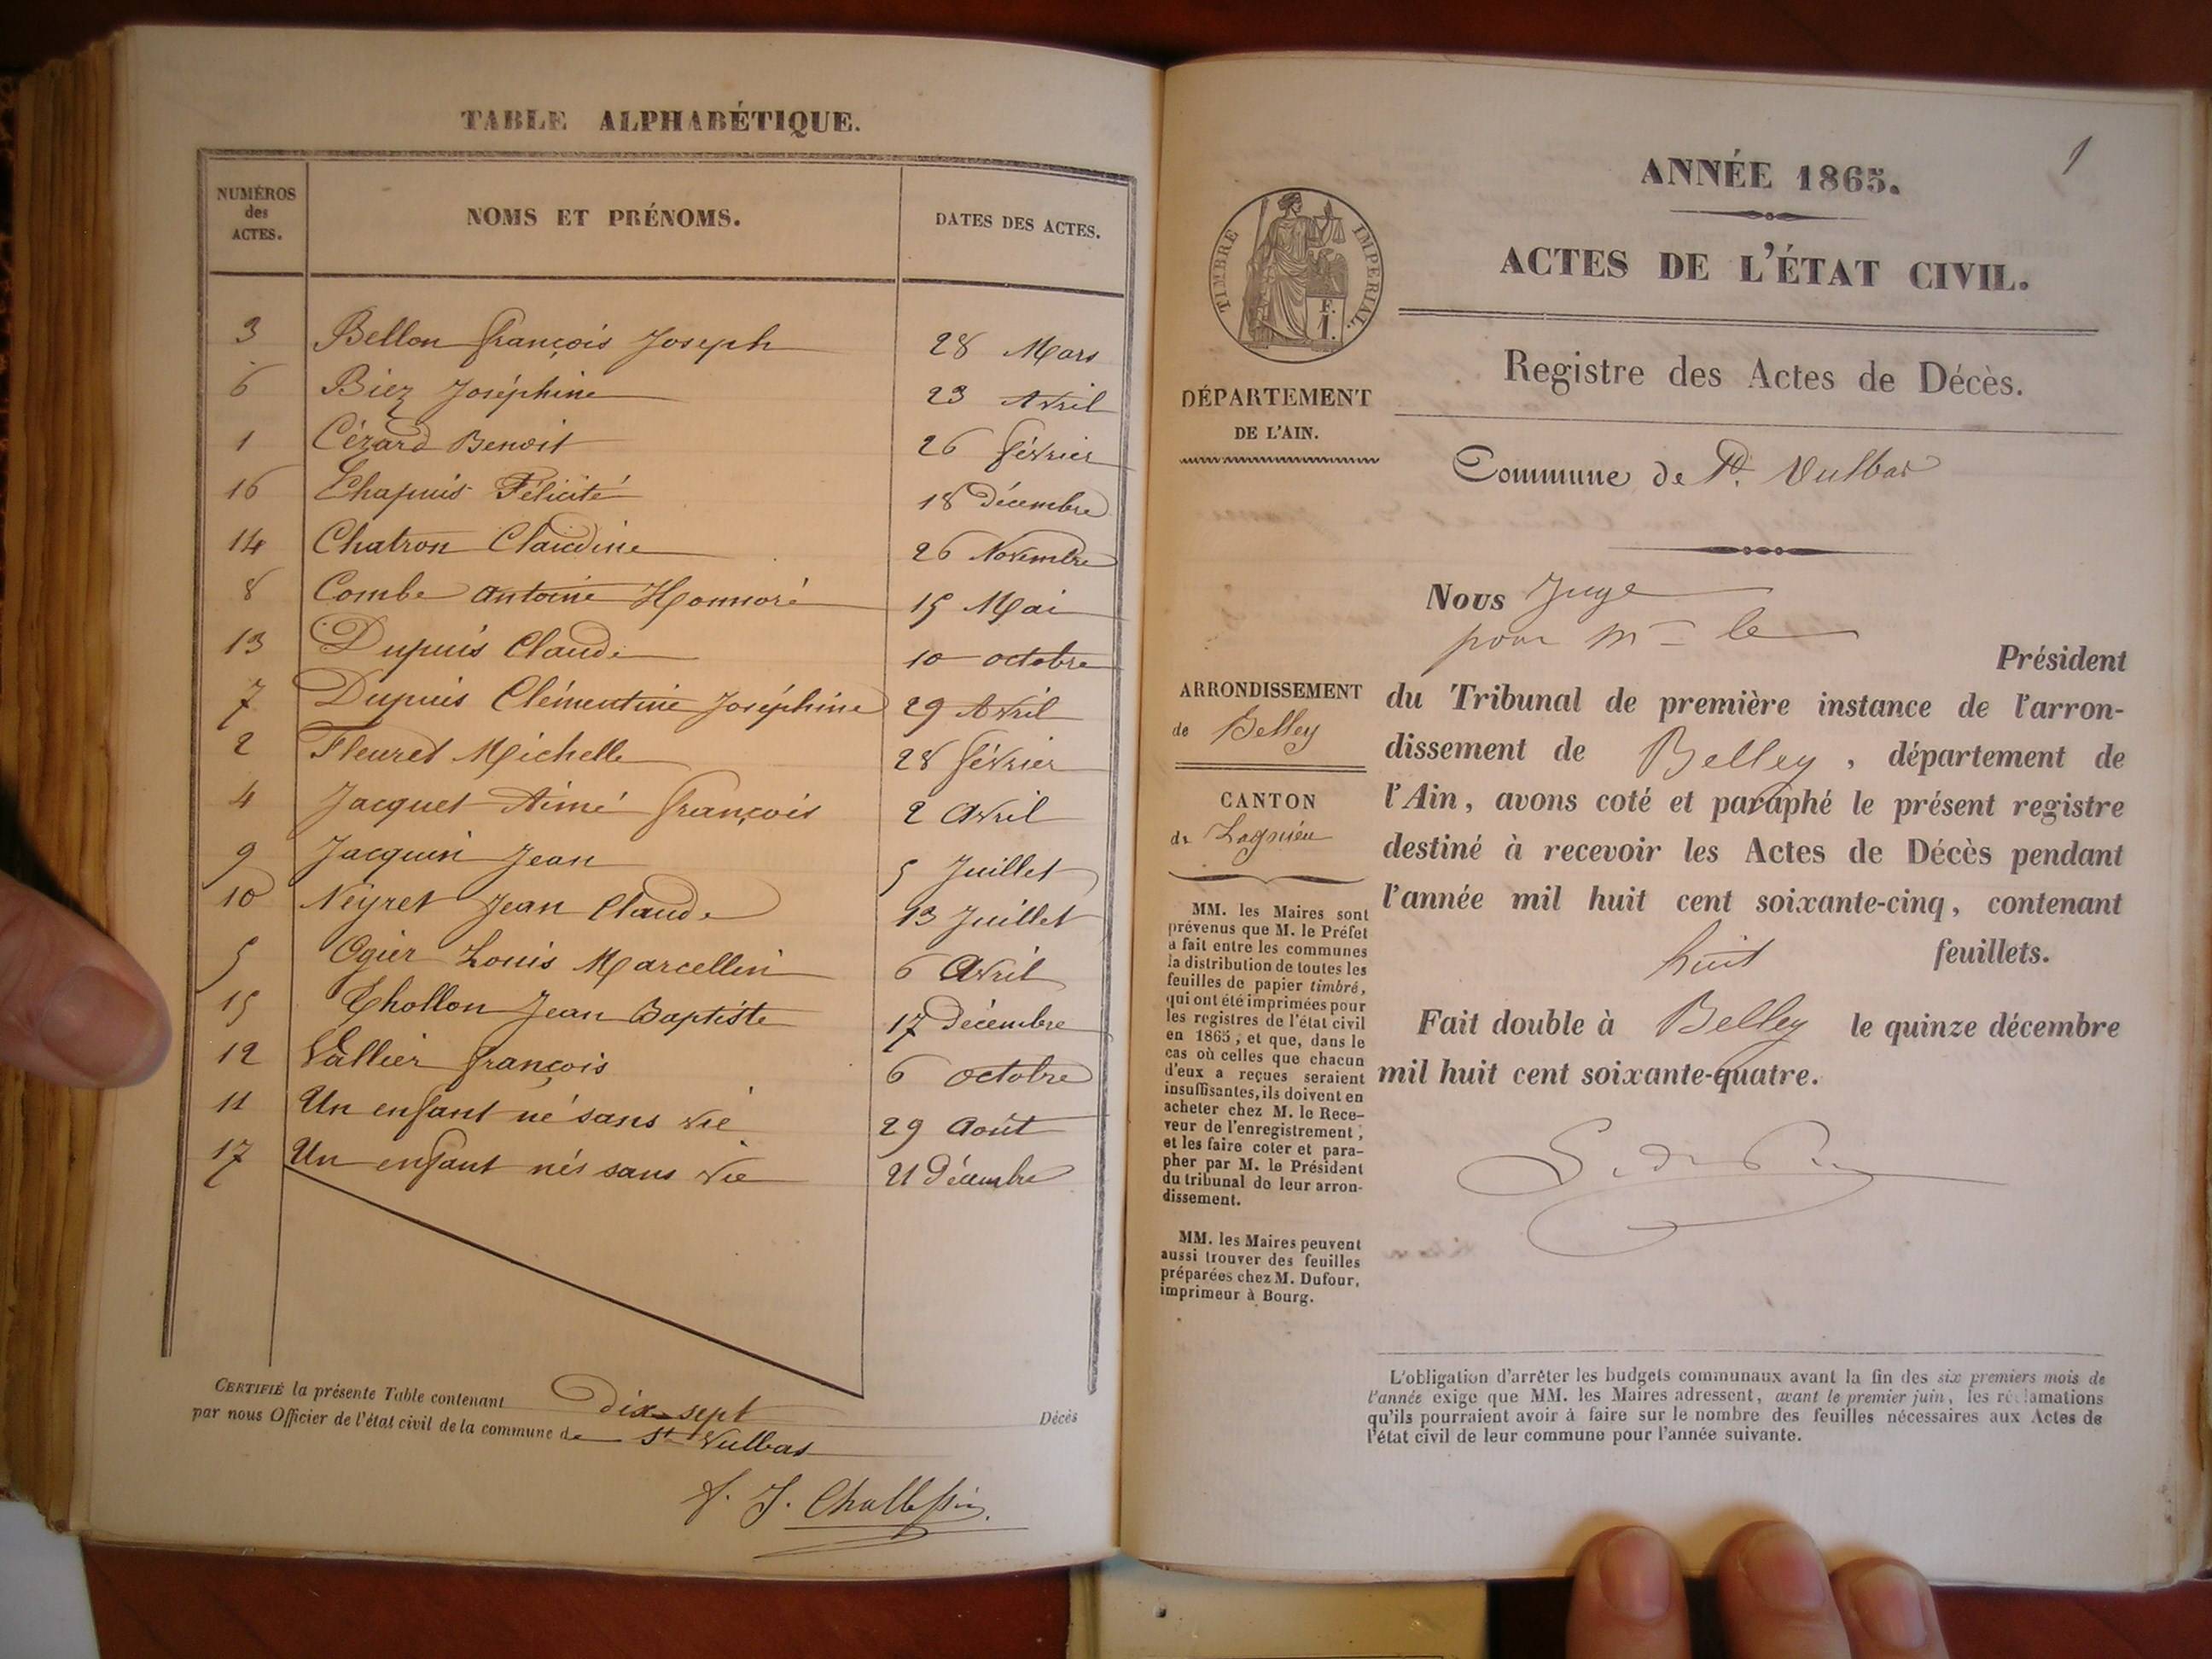 TABLE ALPHABÉTIQUE.
NUMÉROS des ACTES. NOMS ET PRÉNOMS. DATES DES ACTES.
3 Bellon françois Joseph 28 Mars
6 Biez Joséphine 23 Avril
1 Cézard Benoit 26 février
16 Chapuis Félicité 18 décembre
14 Chatron Claudine 26 Novembre
8 Combe Antoine Honnoré 15 Mai
13 Dupuis Claude 10 octobre
7 Dupuis Clémentine Joséphine 29 Avril
2 Fleuret Michelle 28 février
4 Jacquet Aimé françois 2 Avril
9 Jacquin Jean 5 Juillet
10 Neyret Jean Claude 13 Juillet
5 Ogier Louis Marcellin 6 Avril
15 Thollon Jean Baptiste 17 décembre
12 Vallier françois 6 octobre
11 Un enfant né sans vie 29 Août
17 Un enfant nés sans vie 21 décembre
CERTIFIÉ la présente Table contenant dix-sept Décès
par nous Officier de l'état civil de la commune de St Vulbas
1
ANNÉE 1865.
ACTES DE L'ÉTAT CIVIL.
Registre des Actes de Décès.
Commune de St. Vulbas
TIMBRE IMPERIAL.
F.
1.
DÉPARTEMENT
DE L'AIN.
ARRONDISSEMENT
de Belley
CANTON
de Lagnieu
MM. les Maires sont
prévenus que M. le Préfet
a fait entre les communes
la distribution de toutes les
feuilles de papier timbré,
qui ont été imprimées pour
les registres de l'état civil
en 1865, et que, dans le
cas où celles que chacun
d'eux a reçues seraient
insuffisantes, ils doivent en
acheter chez M. le Rece-
veur de l'enregistrement,
et les faire coter et para-
pher par M. le Président
du tribunal de leur arron-
dissement.
MM. les Maires peuvent
aussi trouver des feuilles
préparées chez M. Dufour,
imprimeur à Bourg.
Nous Juge
pour Mr le
Président
du Tribunal de première instance de l'arron-
dissement de Belley, département de
l'Ain, avons coté et paraphé le présent registre
destiné à recevoir les Actes de Décès pendant
l'année mil huit cent soixante-cinq, contenant
huit feuillets.
Fait double à Belley le quinze décembre
mil huit cent soixante-quatre.
L'obligation d'arrêter les budgets communaux avant la fin des six premiers mois de
l'année exige que MM. les Maires adressent, avant le premier juin, les réclamations
qu'ils pourraient avoir à faire sur le nombre des feuilles nécessaires aux Actes de
l'état civil de leur commune pour l'année suivante.